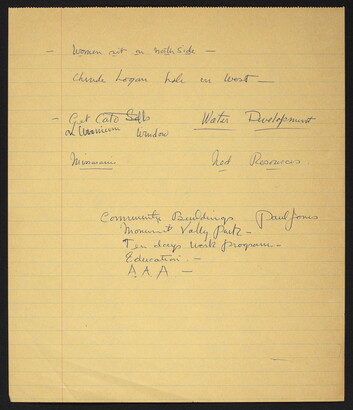 — Women sit on north side —
Chinde Logan hole in West —
— Get Cato Sells Water Development
on Uranium Window
Res Resources
Community Buildings Paul Jones
Monument Vally Park —
Ten days work program —
Education. —
A.A.A —